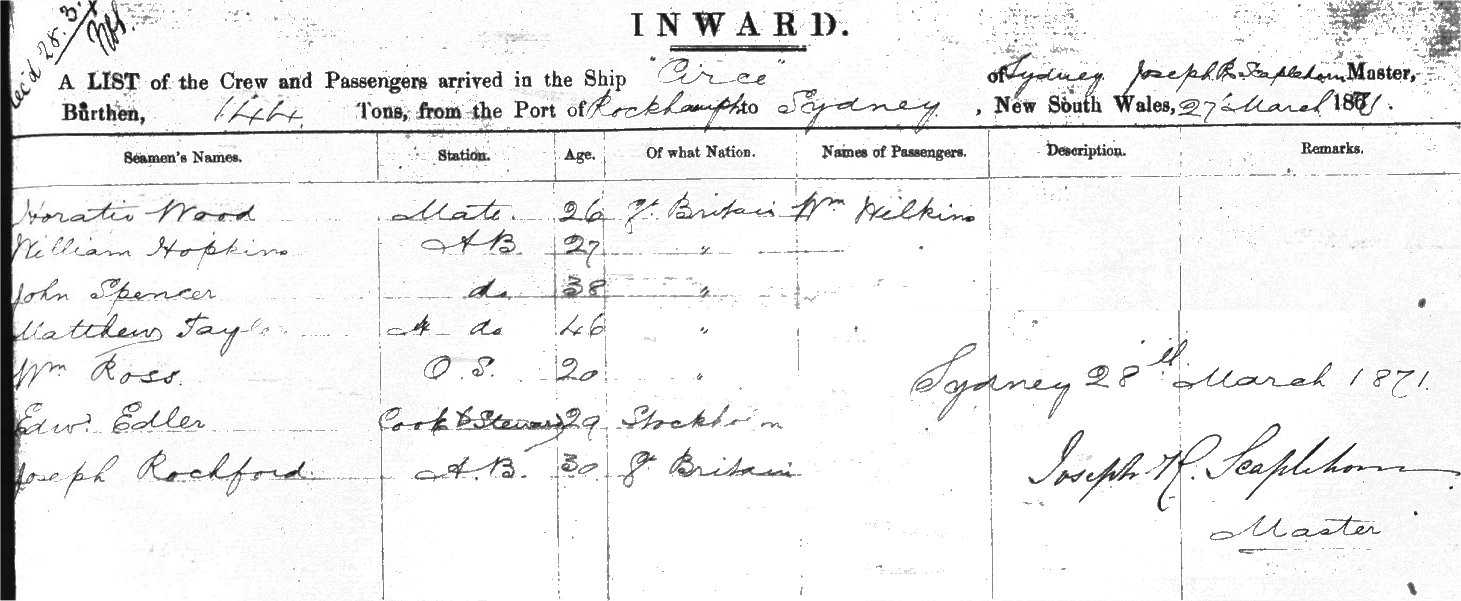 Rec'd 28.3.
INWARD.
A LIST of the Crew and Passengers arrived in the Ship "Circe" of Sydney Joseph R Scaplehorn Master,
Burthen, 144 Tons, from the Port of Rockhampt to Sydney, New South Wales, 27 March 1871.
Seamen's Names. Station. Age. Of what Nation. Names of Passengers. Description. Remarks.
Horatio Wood Mate. 26 Gt Britain Wm Wilkins
William Hopkins A B. 27 "
John Spencer do 38 "
Matthew Taylo do 46 "
Wm Ross. O. S. 20 "
Sydney 28th March 1871.
Edwd Edler Cook & Steward 29 Stockholm
Joseph Rochford A.B. 30 Gt Britain
Joseph R. Scaplehorn
Master